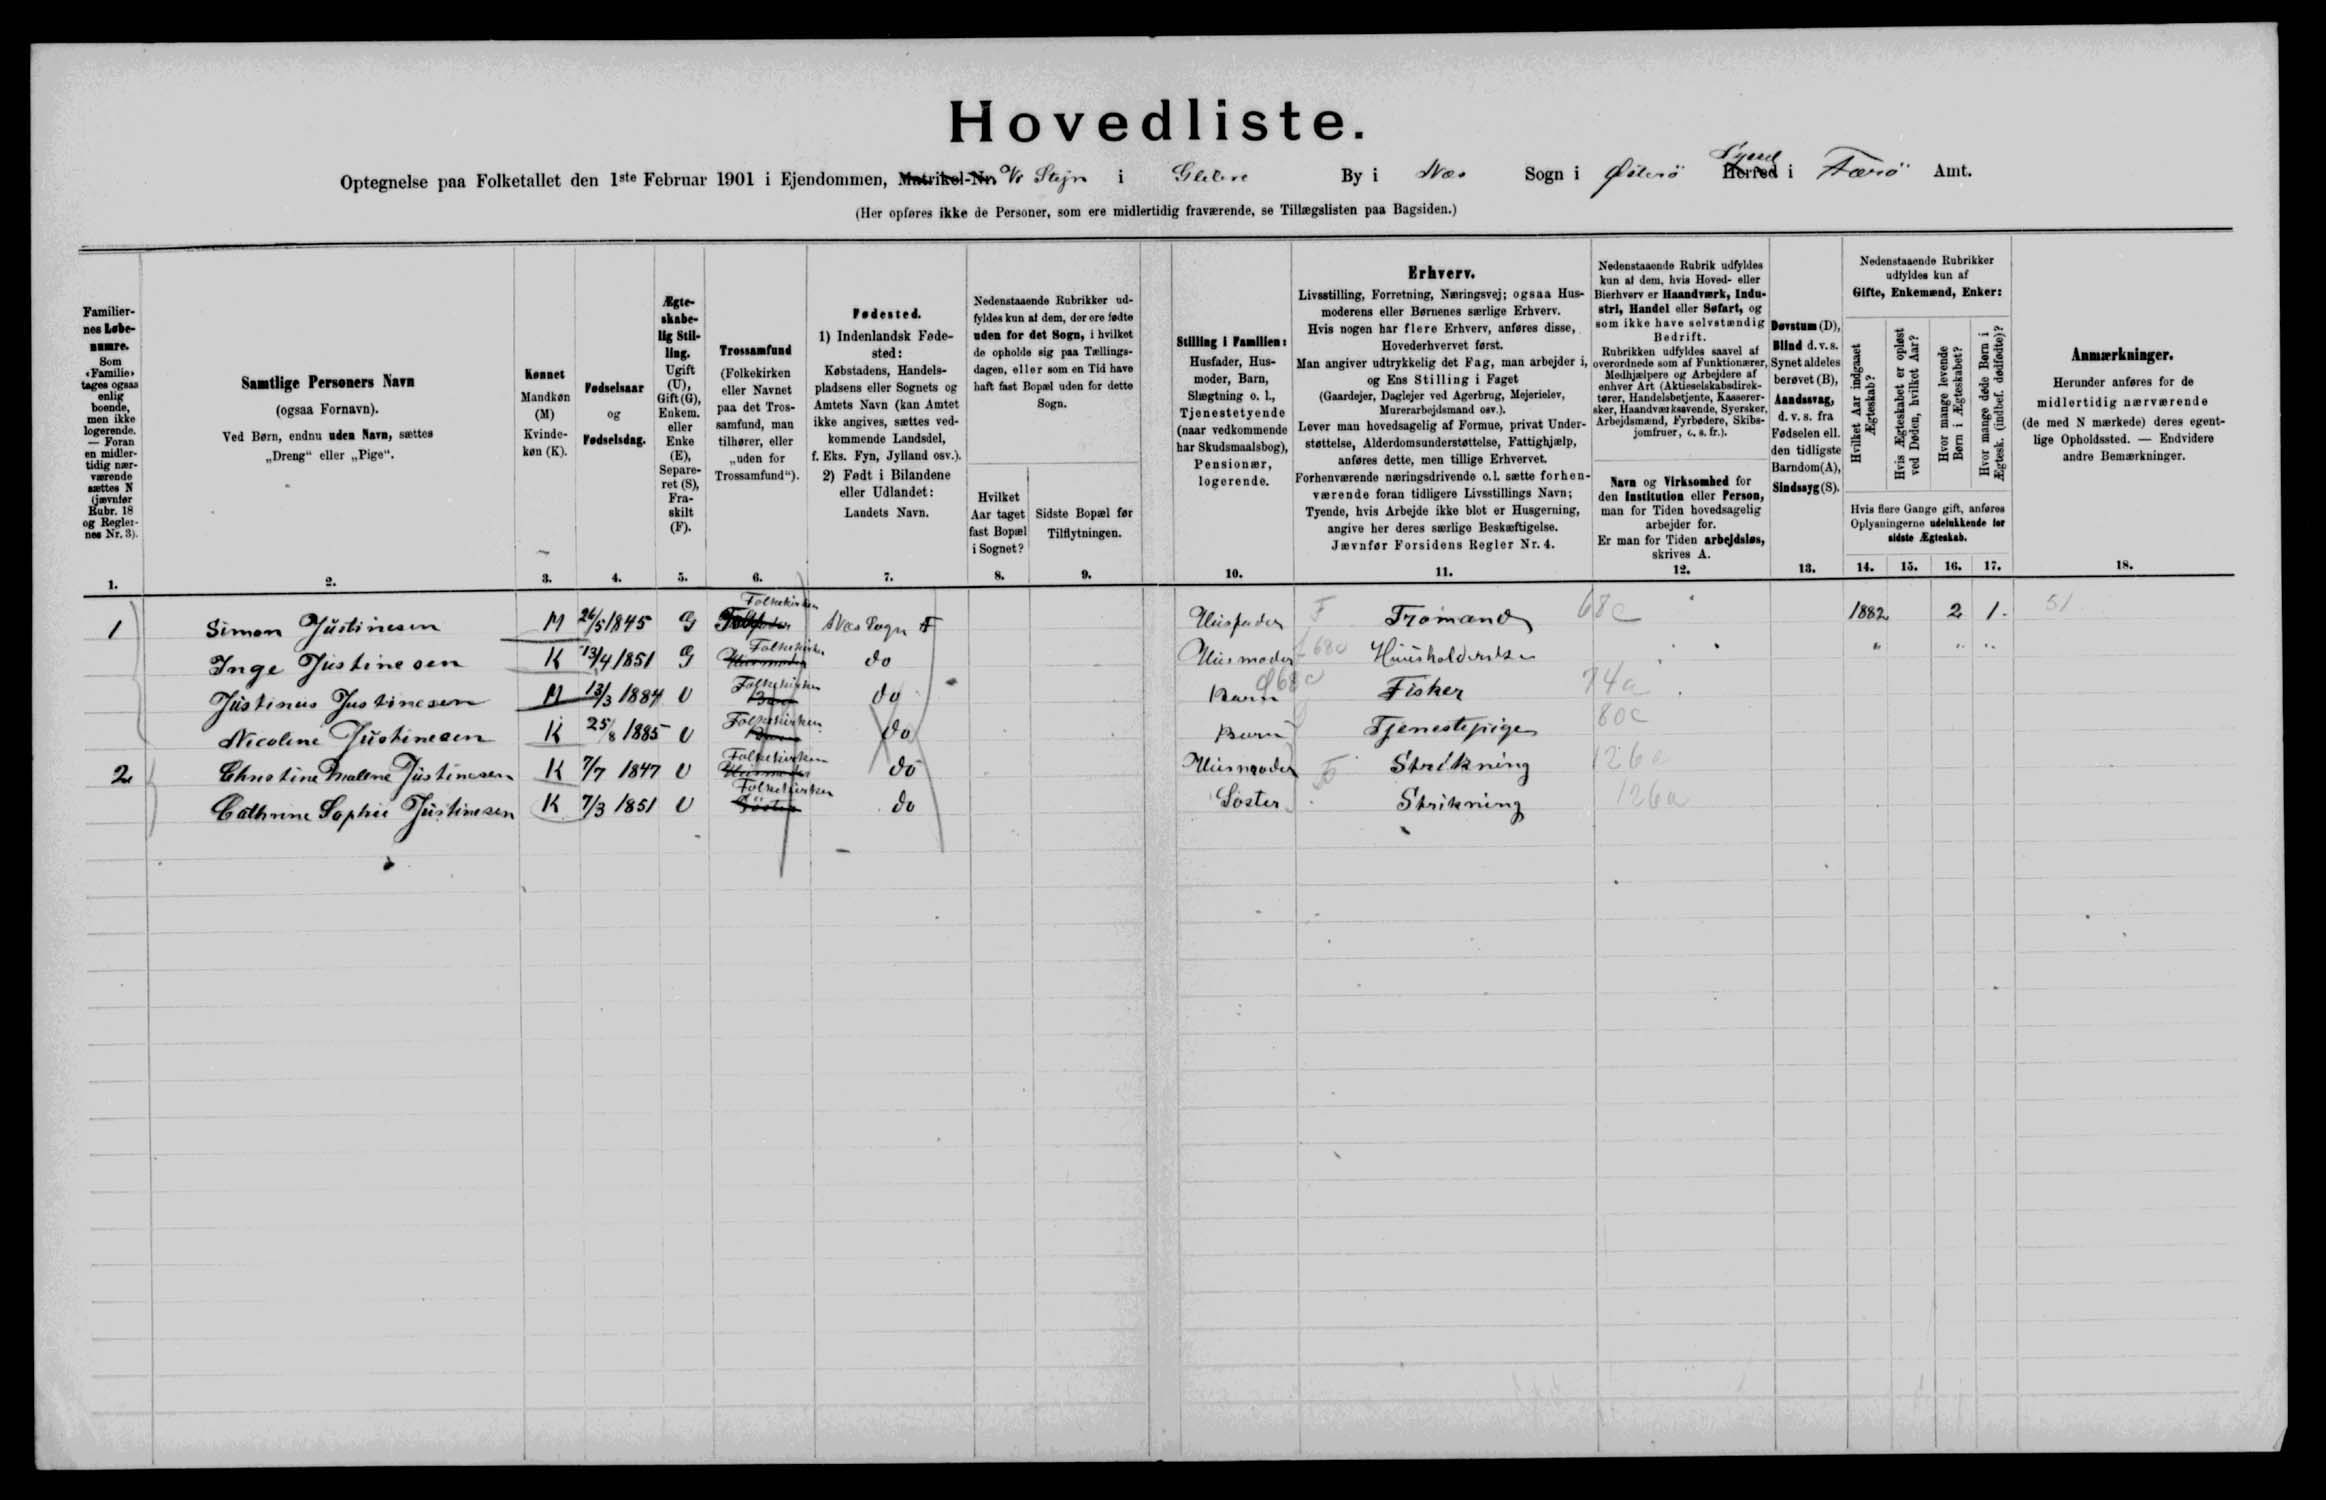 Hovedliste.
Optegnelse paa Folketallet den 1ste Februar 1901 i Ejendommen, Matrikel-Nr. Vr Stejn i Glibre By i Næs Sogn i Østerö Herred Syssel i Færö Amt.
(Her opføres ikke de Personer, som ere midlertidig fraværende, se Tillægslisten paa Bagsiden.)
Familier-
nes Løbe-
numre.
Som
«Familie»
tages ogsaa
enlig
boende,
men ikke
logerende.
— Foran
en midler-
tidig nær-
værende
sættes N
(jævnfør
Rubr. 18
og Regler-
nes Nr. 3).
Samtlige Personers Navn
(ogsaa Fornavn).
Ved Børn, endnu uden Navn, sættes
„Dreng“ eller „Pige“.
Kønnet
Mandkøn
(M)
Kvinde-
køn (K).
Fødselsaar
og
Fødselsdag.
Ægte-
skabe-
lig Stil-
ling.
Ugift
(U),
Gift (G),
Enkem.
eller
Enke
(E),
Separe-
ret (S),
Fra-
skilt
(F).
Trossamfund
(Folkekirken
eller Navnet
paa det Tros-
samfund, man
tilhører, eller
„uden for
Trossamfund“).
Fødested.
1) Indenlandsk Føde-
sted:
Købstadens, Handels-
pladsens eller Sognets og
Amtets Navn (kan Amtet
ikke angives, sættes ved-
kommende Landsdel,
f. Eks. Fyn, Jylland osv.).
2) Født i Bilandene
eller Udlandet:
Landets Navn.
Nedenstaaende Rubrikker ud-
fyldes kun af dem, der ere fødte
uden for det Sogn, i hvilket
de opholde sig paa Tællings-
dagen, eller som en Tid have
haft fast Bopæl uden for dette
Sogn.
Hvilket
Aar taget
fast Bopæl
i Sognet?
Sidste Bopæl før
Tilflytningen.
Stilling i Familien:
Husfader, Hus-
moder, Barn,
Slægtning o. l.,
Tjenestetyende
(naar vedkommende
har Skudsmaalsbog),
Pensionær,
logerende.
Erhverv.
Livsstilling, Forretning, Næringsvej; ogsaa Hus-
moderens eller Børnenes særlige Erhverv.
Hvis nogen har flere Erhverv, anføres disse,
Hovederhvervet først.
Man angiver udtrykkelig det Fag, man arbejder i,
og Ens Stilling i Faget
(Gaardejer, Daglejer ved Agerbrug, Mejerielev,
Murerarbejdsmand osv.).
Lever man hovedsagelig af Formue, privat Under-
støttelse, Alderdomsunderstøttelse, Fattighjælp,
anføres dette, men tillige Erhvervet.
Forhenværende næringsdrivende o.l. sætte forhen-
værende foran tidligere Livsstillings Navn;
Tyende, hvis Arbejde ikke blot er Husgerning,
angive her deres særlige Beskæftigelse.
Jævnfør Forsidens Regler Nr. 4.
Nedenstaaende Rubrik udfyldes
kun af dem, hvis Hoved- eller
Bierhverv er Haandværk, Indu-
stri, Handel eller Søfart, og
som ikke have selvstændig
Bedrift.
Rubrikken udfyldes saavel af
overordnede som af Funktionærer,
Medhjælpere og Arbejdere af
enhver Art (Aktieselskabsdirek-
tører, Handelsbetjente, Kasserer-
sker, Haandværkssvende, Syersker,
Arbejdsmænd, Fyrbødere, Skibs-
jomfruer, o. s. fr.).
Navn og Virksomhed for
den Institution eller Person,
man for Tiden hovedsagelig
arbejder for.
Er man for Tiden arbejdsløs,
skrives A.
Døvstum (D),
Blind d. v. s.
Synet aldeles
berøvet (B),
Aandssvag,
d. v. s. fra
Fødselen ell.
den tidligste
Barndom (A),
Sindssyg (S).
Nedenstaaende Rubrikker
udfyldes kun af
Gifte, Enkemænd, Enker:
Hvilket Aar indgaaet
Ægteskab?
Hvis Ægteskabet er opløst
ved Døden, hvilket Aar?
Hvor mange levende
Børn i Ægteskabet?
Hvor mange døde Børn i
Ægtesk. (indbef. dødfødte)?
Hvis flere Gange gift, anføres
Oplysningerne udelukkende for
sidste Ægteskab.
Anmærkninger.
Herunder anføres for de
midlertidig nærværende
(de med N mærkede) deres egent-
lige Opholdssted. — Endvidere
andre Bemærkninger.
1. 2. 3. 4. 5. 6. 7. 8. 9. 10. 11. 12. 13. 14. 15. 16. 17. 18.
1 Simon Justinesen M 26/5 1845 G Folkekirken Næs Sogn F Husfader F Tromand 68c 1882 2 1. 51
Inge Justinesen K 13/4 1851 G Husmoder Folkekirken do Husmoder 68c Huusholderske " " "
Justinus Justinesen M 13/3 1884 U Barn Folkekirken do Barn 68c Fisker 74a
Nicoline Justinesen K 25/8 1885 U Barn Folkekirken do Barn Tjenestepige 80c
2 Christine Malene Justinesen K 7/7 1847 U Husmoder Folkekirken do Husmoder F Strikning 126a
Cathrine Sophie Justinesen K 7/3 1851 U Söster Folkekirken do Söster Strikning 126a